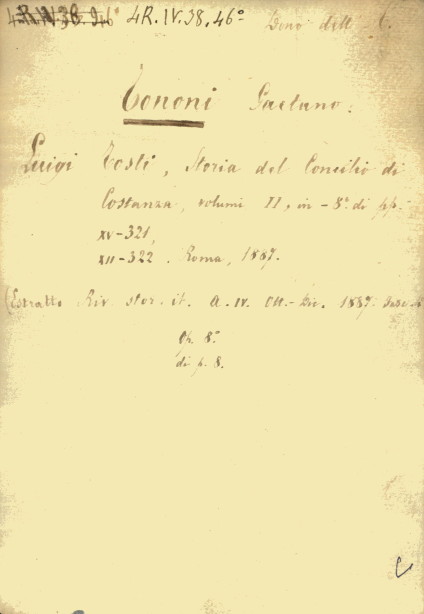 4R.IV.38.46° 4R.IV.38.46° Dono dell
Tononi Gaetano.
Luigi Tosti, Storia del Concilio di
Costanza, volumi II, in-8° di pp.
XV-321,
XII-322. Roma, 1887.
(Estratto Riv. stor. it. A. IV. Ott.-Dic. 1887.
Op. 8°
di p. 8.